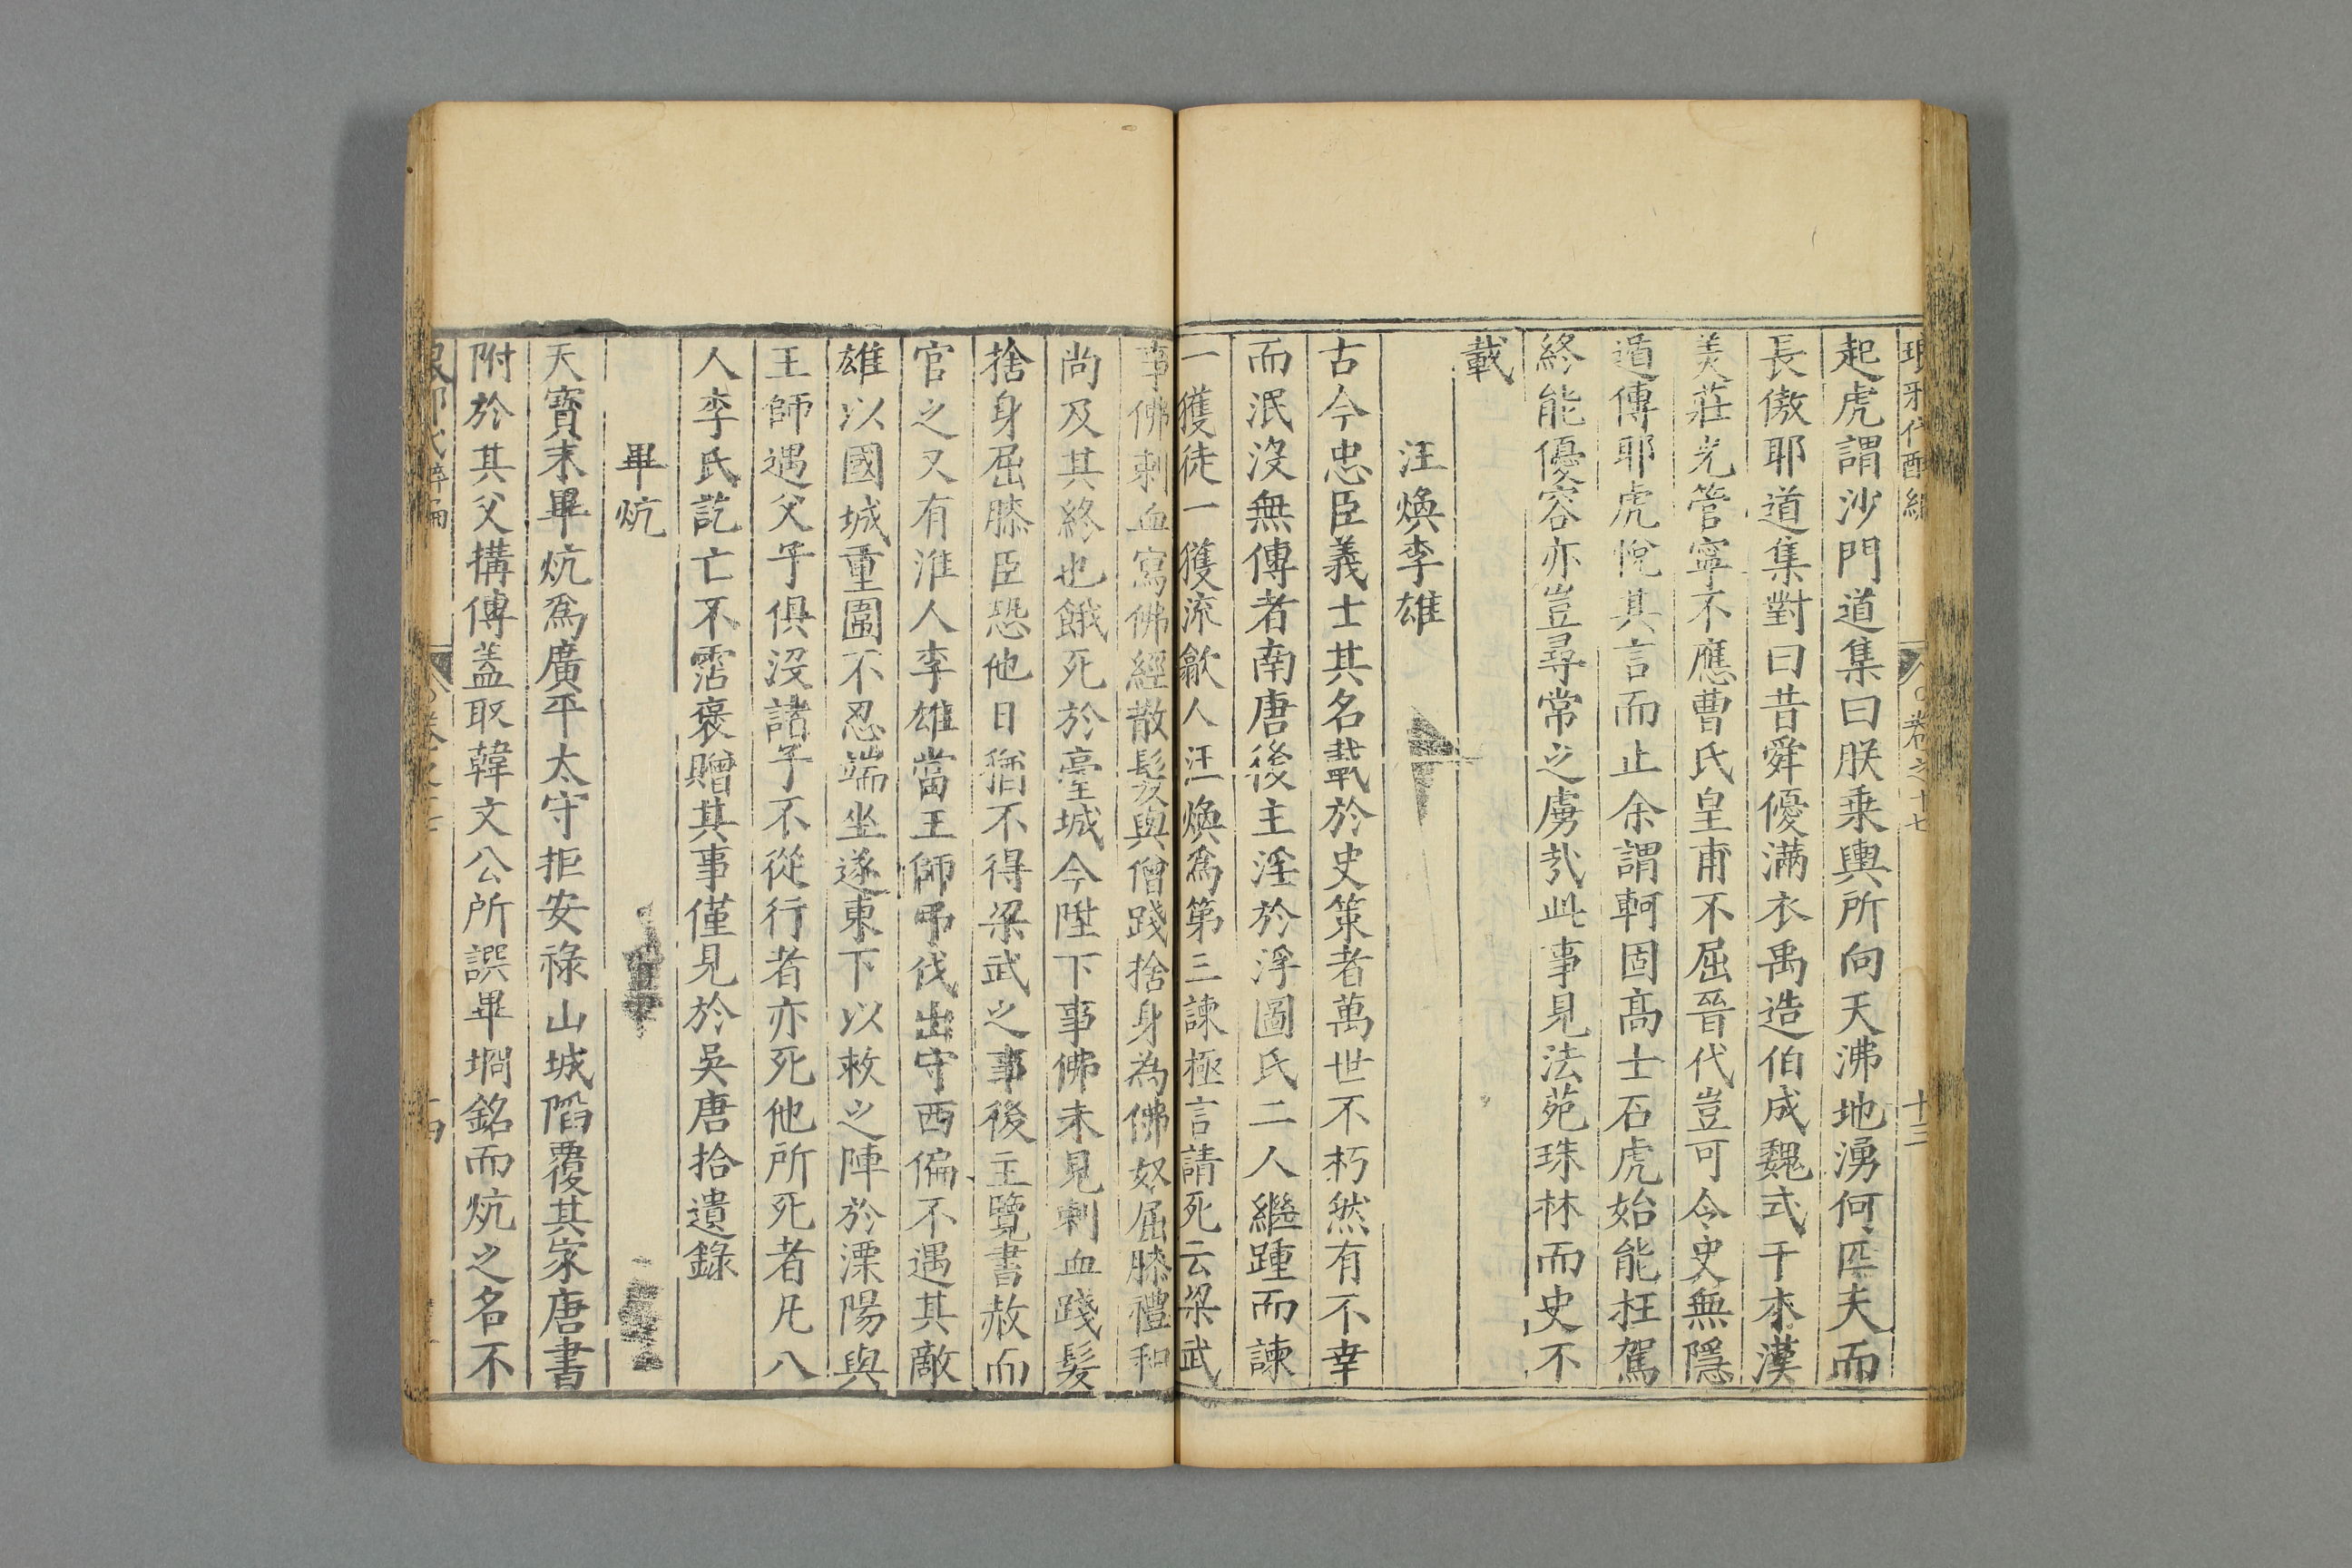 琅邪代醉編 卷之十七 十三
起虎謂沙門道集曰朕乗輿所向天沸地湧何匹夫而
長傲耶道集對曰昔舜優滿衣禹造伯成魏式干木漢
美莊光管寧不應曹氏皇甫不屈晉代豈可令史無隱
遁傳耶虎悅其言而止余謂軻固髙士石虎始能枉駕
終能優容亦豈尋常之虜㢤此事見法苑珠林而史不
載
汪煥李雄
古今忠臣義士其名載於史策者萬世不朽然有不幸
而泯沒無傳者南唐後主淫於浮圖氏二人繼踵而諫
一獲徒一獲流歙人汪煥爲第三諫極言請死云梁武
事佛刺血寫佛經散髮與僧踐捨身為佛奴屈膝禮和
尚及其終也餓死於臺城今陛下事佛未見刺血踐髮
捨身屈膝臣恐他日猶不得梁武之事後主覽書赦而
官之又有淮人李雄當王師弔伐出守西偏不遇其敵
雄以國城重圍不忍端坐遂東下以救之陣於溧陽與
王師遇父子俱沒諸子不從行者亦死他所死者凡八
人李氏訖亡不霑褒贈其事僅見於吳唐拾遺錄
畢炕
天寶末畢炕爲廣平太守拒安祿山城陷覆其家唐書
附於其父搆傳盖取韓文公所譔畢坰銘而炕之名不